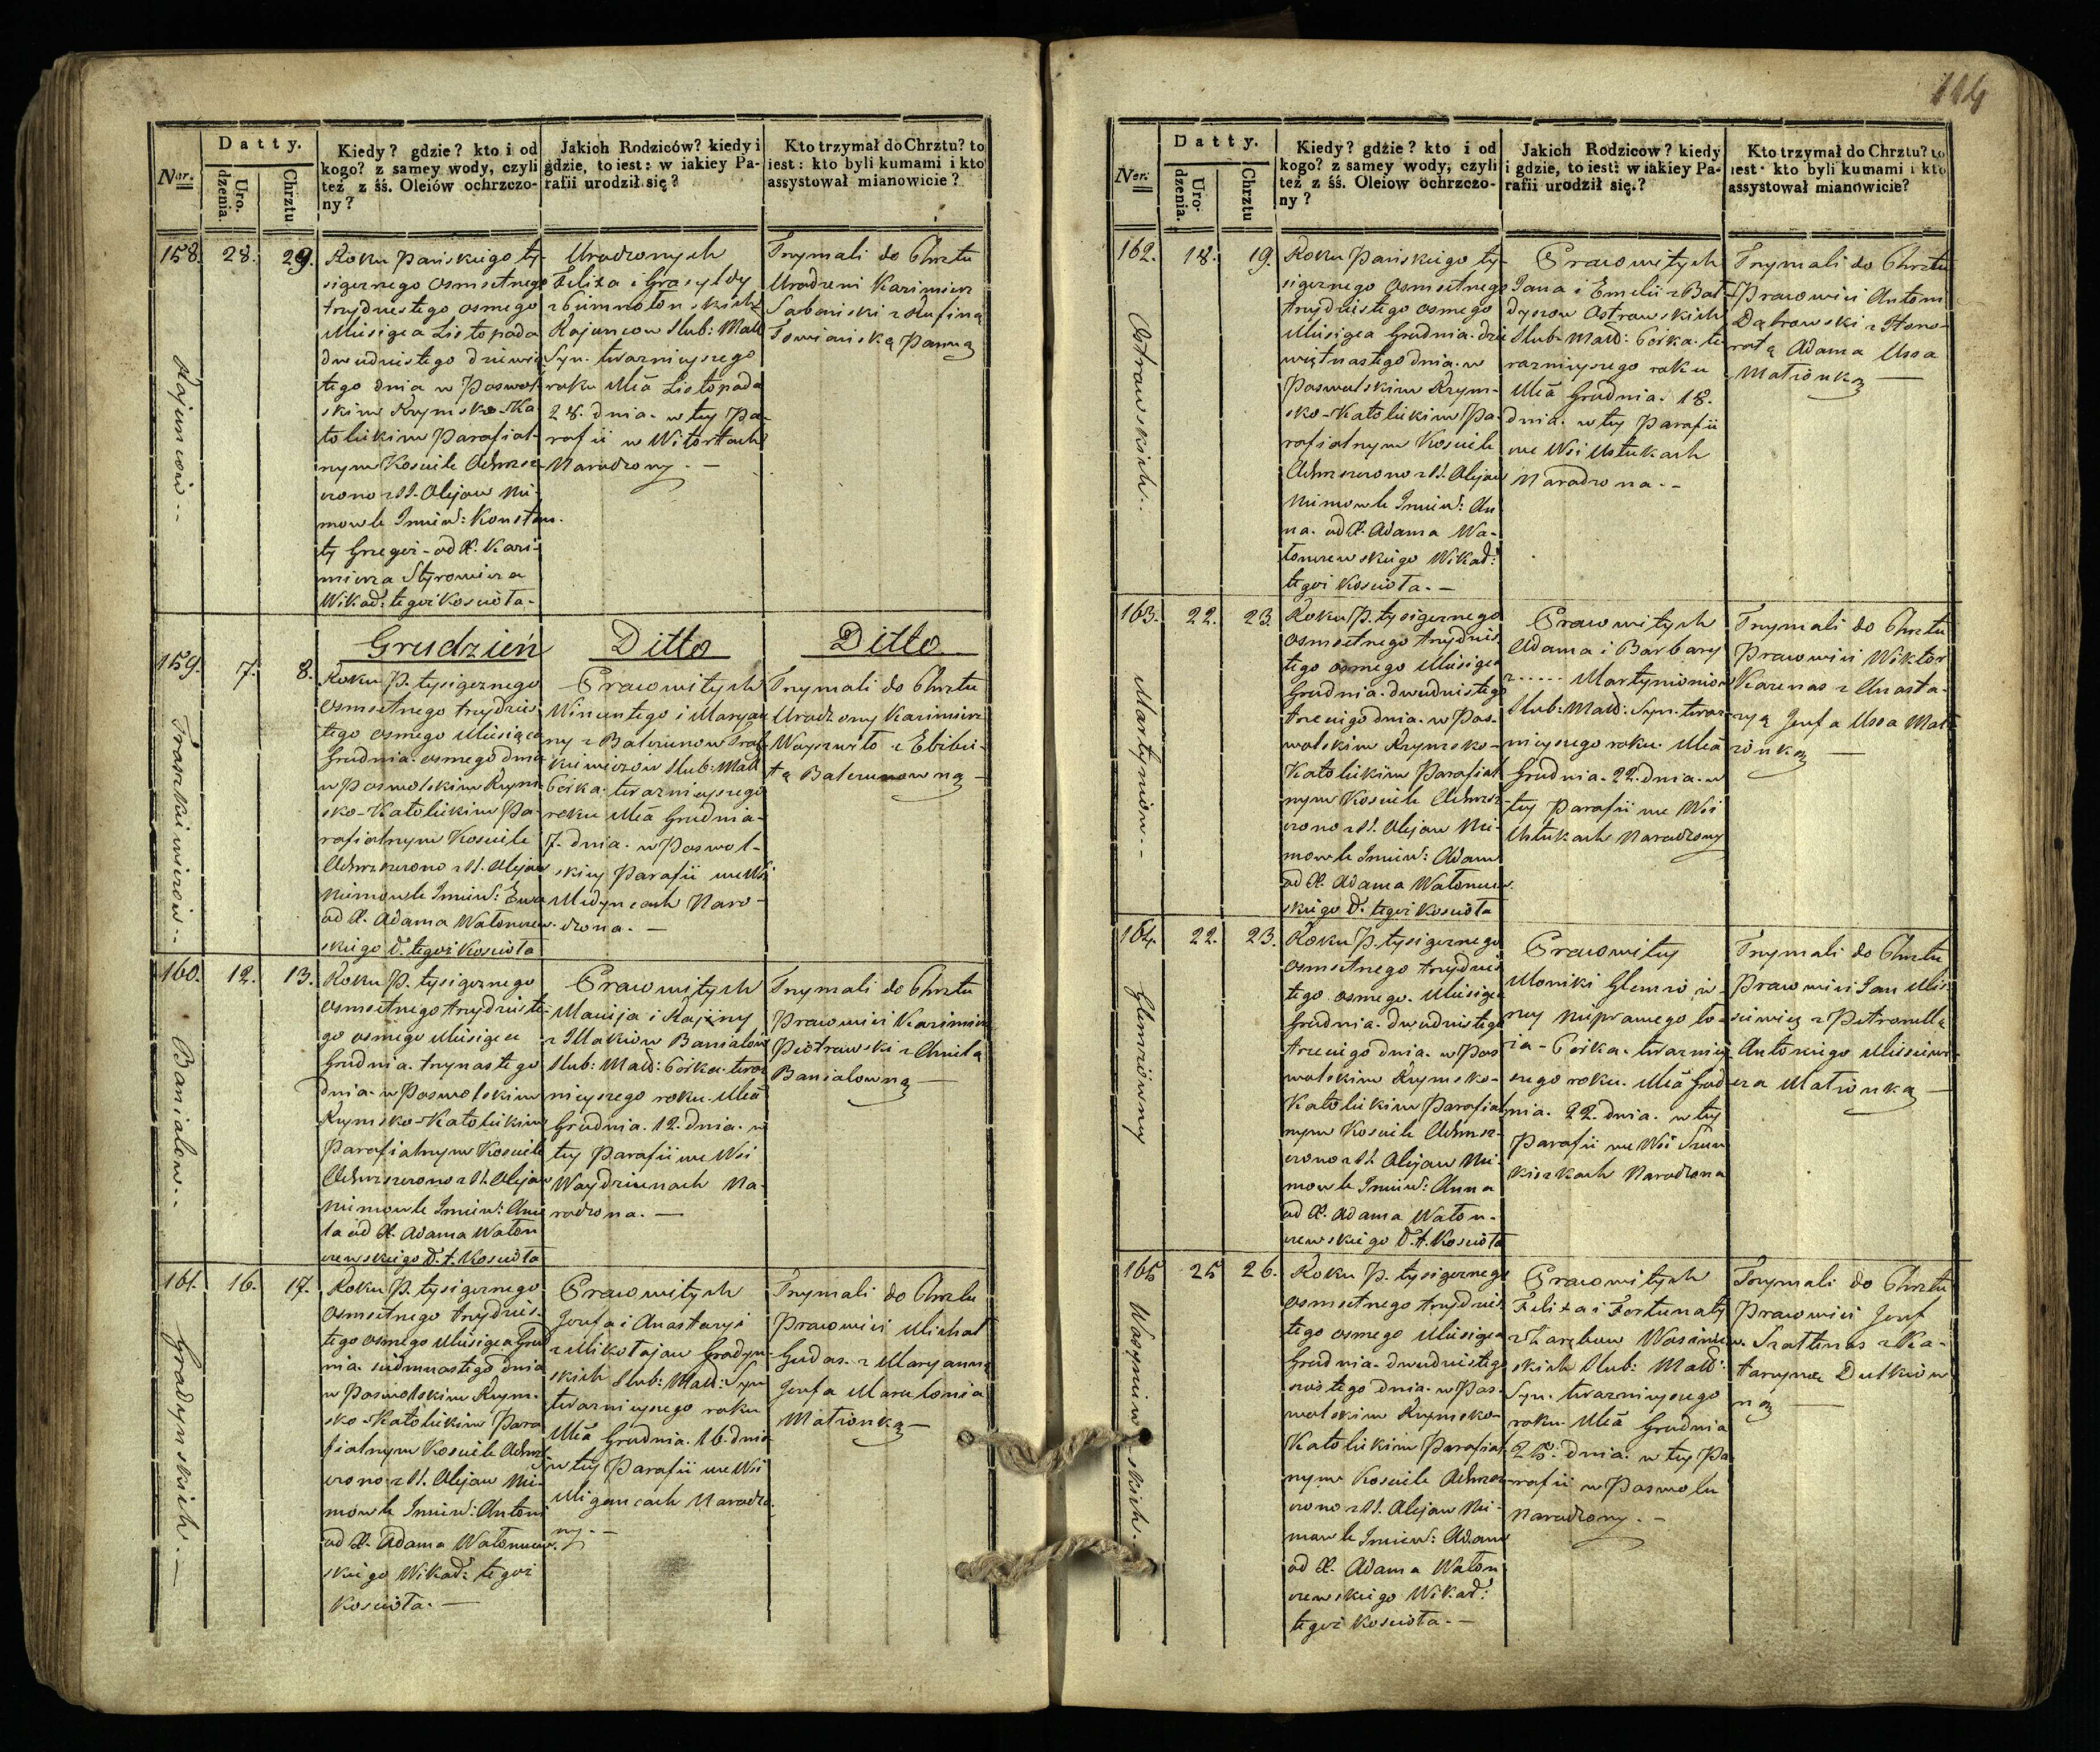 114
Datty.
Ner.
Uro.
dzenia.
Chrztu
Kiedy? gdzie? kto i od
kogo? z samey wody, czyli
też z śś. Oleiów ochrzczo-
ny?
Jakich Rodziców? kiedy i
gdzie, to iest: w iakiey Pa-
rafii urodził się?
Kto trzymał do Chrztu? to
iest: kto byli kumami i kto
assystował mianowicie?
158.
28.
29.
Roku Pańskiego ty-
siącznego osmsetnego
trzydziestego osmego
Miesiąca Listopada
dwudziestego dziewią
tego dnia w Poswol
skim Rzymsko-Ka
tolickim Parafial-
nym Kosciele Ochrzcz-
czono z SS. Olejow Nie-
mowle Imien: Konstan-
ty Grzegorz - od X. Kazi-
mierza Styrowicza
Wikar: tegoż Kosciòła -
Urodzonych
Felixa i Grasyldy
Rajuncow Slub: Małż
Syn. terazniejszego
roku Mca Listopada
28. dnia. w tej Pa-
rafii w Witortach
Narodzony. -
Trzymali do Chrztu
Urodzeni Kazimierz
z Rufiną
Towiańską Panną
Grudzień
Ditto
Ditto
159.
7.
8.
Roku P. tysiącznego
osmsetnego trzydzies
tego osmego Miesiąca
Grudnia. osmego dnia
w Poswolskim Rzym-
sko-Katolickim Pa-
rafialnym Kosciele
Ochrzczono z SS. Olejow
Niemowle Imien: Ewa
od X. Adama Watonczew-
skiego W. tegoż Kosciòła
Pracowitych
Wincentego i Maryan
ny z Balcunow Trasz-
kiewiczow Slub: Małż
Còrka. terazniejszego
roku Mca Grudnia-
7. dnia. w Poswol-
skiej Parafii we Wsi
Medyncach Naro-
dzona. -
Trzymali do Chrztu
Urodzony Kazimierz
Woyszwiło z Elżbie-
tą Balcunowną -
160.
12.
13.
Banialow. -
Roku P. tysiącznego
osmsetnego trzydzieste-
go osmego Miesiąca
Grudnia. trzynastego
dnia. w Poswolskim
Rzymsko-Katolickim
Parafialnym Kosciele
Ochrzczono z SS. Olejow
Niemowle Imien: Anie
la od X. Adama Waton
czewskiego W. t. Kosciòła
Pracowitych
Macieja i Rajiny
z Makiow Banialow
Slub: Małż: Còrka. teraz
niejszego roku. Mca
Grudnia. 12. dnia. w
tej Parafii we Wsi
Woydziunach Na-
rodzona. -
Trzymali do Chrztu
Pracowici Kazimierz
Piotrowski z Anielą
Banialowną -
161.
16.
17.
Gradzynskich. -
Roku P. tysiącznego
osmsetnego trzydzies-
tego osmego Miesiąca Grud
nia. siòdmnastego dnia
w Poswolskim Rzym-
sko-Katolickim Para
fialnym Kosciele Ochrz-
czono z SS. Olejow Nie-
mowle Imien: Antoni
od X. Adama Watonczew-
skiego Wikar: tegoż
Kosciòła. -
Pracowitych
Jozefa i Anastazyi
z Mikołajow Gradzyn-
skich Slub: Mał: Syn
terazniejszego roku
Mca Grudnia. 16. dnia
w tej Parafii we Wsi
Migoncach Narodzo-
ny. -
Trzymali do Chrztu
Pracowici Michał
Gudas. z Maryanną
Jozefa Marcelonia
Małżonką -
Datty.
Ner.
Uro-
dzenia.
Chrztu
Kiedy? gdzie? kto i od
kogo? z samey wody, czyli
też z śś. Oleiow ochrzczo-
ny?
Jakich Rodzicow? kiedy
i gdzie, to iest: w iakiey Pa-
rafii urodził się.?
Kto trzymał do Chrztu? to
iest: kto byli kumami i kto
assystował mianowicie?
162.
18.
19.
Ostrowskich. -
Roku Pańskiego ty-
siącznego osmsetnego
trzydziestego osmego
Miesiąca Grudnia. dzie
więtnastego dnia. w
Poswolskim Rzym-
sko-Katolickim Pa-
rafialnym Kosciele
Ochrzczono z SS. Olejow
Niemowle Imien: An
na. od X. Adama Wa-
tonczewskiego Wikar:
tegoż Kosciòła. -
Pracowitych
Jana i Emelii z Bał-
dysow Ostrowskich
Slub. Małż: Còrka. te
razniejszego roku
Mca Grudnia. 18.
dnia. w tej Parafii
we Wsi Ustukach
Narodzona. -
Trzymali do Chrztu
Pracowici Antoni
Dąbrowski z Hono-
ratą Adama Ussa
Małżonką -
163.
22.
23.
Martyniow. -
Roku P. tysiącznego
osmsetnego trzydzies
tego osmego Miesiąca
Grudnia. dwudziestego
trzeciego dnia. w Pos-
wolskim Rzymsko-
Katolickim Parafial
nym Kosciele Ochrzcz-
czono z SS. Olejow Nie-
mowle Imien: Adam
od X. Adama Watonczew-
skiego W. tegoż Kosciòła
Pracowitych
Adama i Barbary
z ..... Martyniow
Slub: Małż: Syn. teraz-
niejszego roku. Mca
Grudnia. 22. dnia. w
tej Parafii we Wsi
Ustukach Narodzony
Trzymali do Chrztu
Pracowici Wiktor
Karenas z Anasta-
zyą Jozefa Ussa Mał-
żonką -
164.
22.
23.
Glemżòwny
Roku P. tysiącznego
osmsetnego trzydzies
tego osmego. Miesiąca
Grudnia. dwudziestego
trzeciego dnia. w Pos
wolskim Rzymsko-
Katolickim Parafial
nym Kosciele Ochrzcz-
czono z SS. Olejow Nie-
mowle Imien: Anna
od X. Adama Waton-
czewskiego W. t. Kosciòła
Pracowitej
Moniki Glemżòw-
ny nieprawego ło-
ża - Còrka. terazniej
szego roku. Mca Grud
nia. 22. dnia. w tej
Parafii we Wsi
Narodzona
Trzymali do Chrztu
Pracowici Jan Mis-
siewicz z Petronellą
Antoniego Missiewi-
cza Małżonką -
165
25
26.
Roku P. tysiącznego
osmsetnego trzydzies
tego osmego Miesiąca
Grudnia. dwudziestego
szostego dnia. w Pos-
wolskim Rzymsko-
Katolickim Parafial
nym Kosciele Ochrzcz-
czono z SS. Olejow Nie-
mowle Imien: Adam
od X. Adama Waton
czewskiego Wikar:
tegoż Kosciòła. -
Pracowitych
Felixa i Fortunaty
z Zarębow
skich Slub: Małż:
Syn. terazniejszego
roku. Mca Grudnia
25. dnia. w tej Pa
rafii w Poswolu
Narodzony. -
Trzymali do Chrztu
Pracowici Jozef
Szattenas z Ka-
tarzyną Dutkiew
ną -